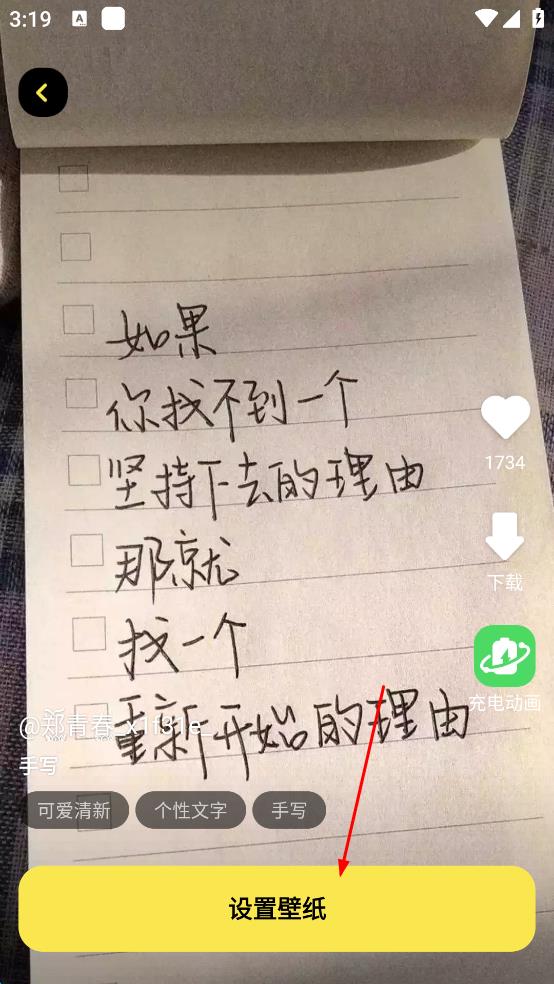 3:19
A
如果
你找不到一个
坚持下去的理由
那就
找一个
重新开始的理由
1734
下载
充电动画
@郑青春_x1f31e_
手写
可爱清新
个性文字
手写
设置壁纸